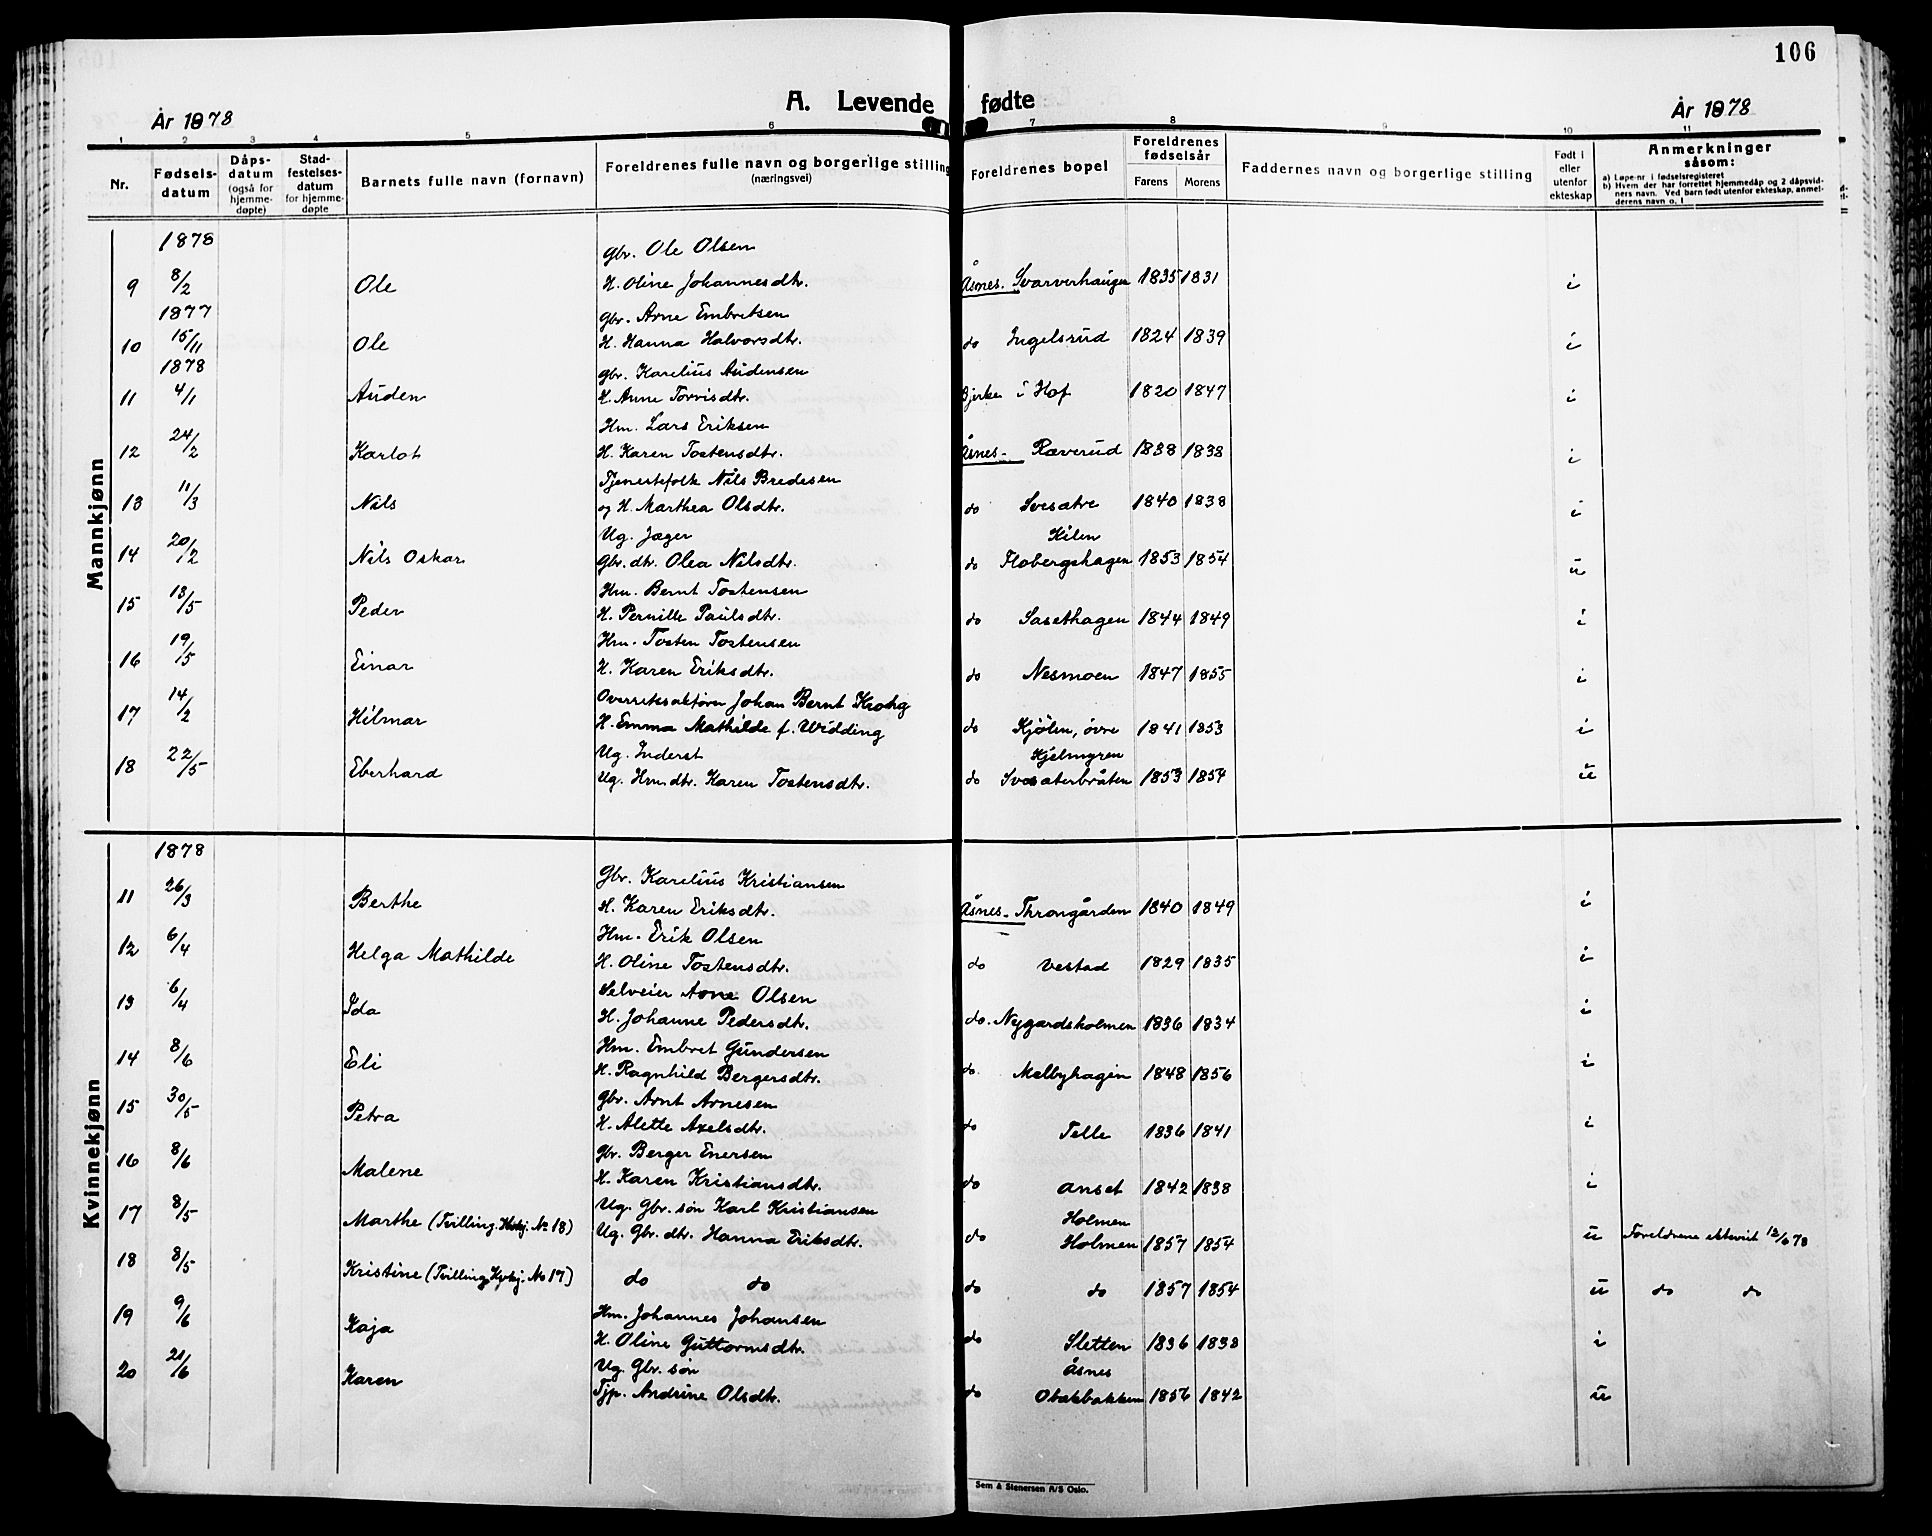 106
A. Levende fødte
År 1878
År 1878
1 2 3 4 5 6 7 8 9 10 11
Nr. Fødselsdatum Dåpsdatum (også for hjemmedøpte) Stadfestelsesdatum for hjemmedøpte Barnets fulle navn (fornavn) Foreldrenes fulle navn og borgerlige stilling (næringsvei) Foreldrenes bopel Foreldrenes fødselsår Farens Morens Faddernes navn og borgerlige stilling Født i eller utenfor ekteskap Anmerkninger såsom:
a) Løpe-nr i fødselsregisteret
b) Hvem der har forrettet hjemmedåp og 2 dåpsvidners navn. Ved barn født utenfor ekteskap, anmelderens navn o. l
Mannkjønn
1878 Gbr. Ole Olsen
9 8/2 Ole H. Oline Johannesdtr. Åsnes. Svarverhaugen 1835 1831 i
1877 Gbr. Arne Embretsen
10 15/11 Ole H. Hanna Halvorsdtr. do Ingelsrud 1824 1839 i
1878 Gbr. Karelius Audensen
11 4/1 Auden H. Anne Torvisdtr. Bjerke i Hof 1820 1847 i
Hm. Lars Eriksen
12 24/2 Karlot H. Karen Tostensdtr. Åsnes- Ræverud 1838 1838 i
Tjenestefolk Nils Bredesen
13 11/3 Nils og H. Marthea Olsdtr. do Svesætre 1840 1838 i
Ug. Jæger Kilen
14 20/2 Nils Oskar Gbr. dtr. Olea Nilsdtr. do Flobergshagen 1853 1854 u
Hm. Bernt Tostensen
15 13/5 Peder H. Pernille Paulsdtr. do Sasethagen 1844 1849 i
Hm. Tosten Tostensen
16 19/5 Einar H. Karen Eriksdtr. do Nesmoen 1847 1855 i
Overretssaktører Johan Bernt Krohg
17 14/2 Hilmar H. Emma Mathilde f. Widding do Kjölen, övre 1841 1853 i
Ug. Inderst Hjelmgren
18 22/5 Eberhard Ug. Hm. dtr. Karen Tostensdtr. do Svesæterbråten 1853 1854 u
Kvinnekjønn
1878
Gbr. Karelius Kristiansen
11 26/3 Berthe H. Karen Eriksdtr. Åsnes. Throngården 1840 1849 i
Hm. Erik Olsen
12 6/4 Helga Mathilde H. Oline Tostensdtr. do Vestad 1829 1835 i
Selveier Arne Olsen
13 6/4 Ida H. Johanne Pedersdtr. do. Nygardsholmen 1836 1834 i
Hm. Embret Gundersen
14 8/6 Eli H. Ragnhild Bergersdtr. do. Melbyhagen 1848 1856 i
Gbr. Arnt Arnesen
15 30/5 Petra H. Alette Axelsdtr. do Telle 1836 1841 i
Gbr. Berger Enersen
16 8/6 Malene H. Karen Kristiansdtr. do Anset 1842 1838 i
Ug. Gbr. søn Karl Kristiansen Holmen
17 8/5 Marthe (Tvilling. Kvkj. No 18) Ug. Gbr. dtr. Hanna Eriksdtr. do Holmen 1857 1854 u Foreldrene ekteviet 12/6 78
18 8/5 Kristine (Tvilling Kvkj. No 17) do do do do 1857 1854 u do do
Hm. Johannes Johansen
19 9/6 Kaja H. Oline Guttormsdtr. do Sletten 1836 1838 i
Ug. Gbr. søn Åsnes
20 21/6 Karen Tjp. Andrine Olsdtr. do Obakbakken 1856 1842 u
Sem & Stenersen A/S Oslo.